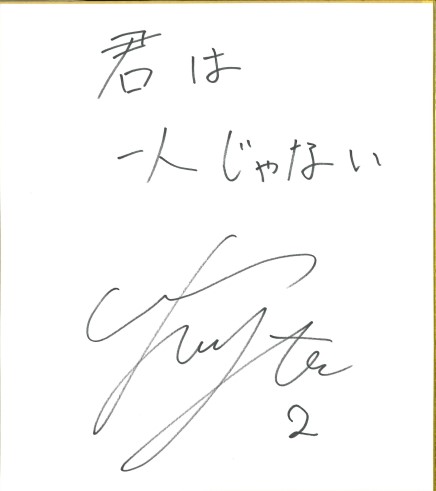 君は
一人じゃない
2